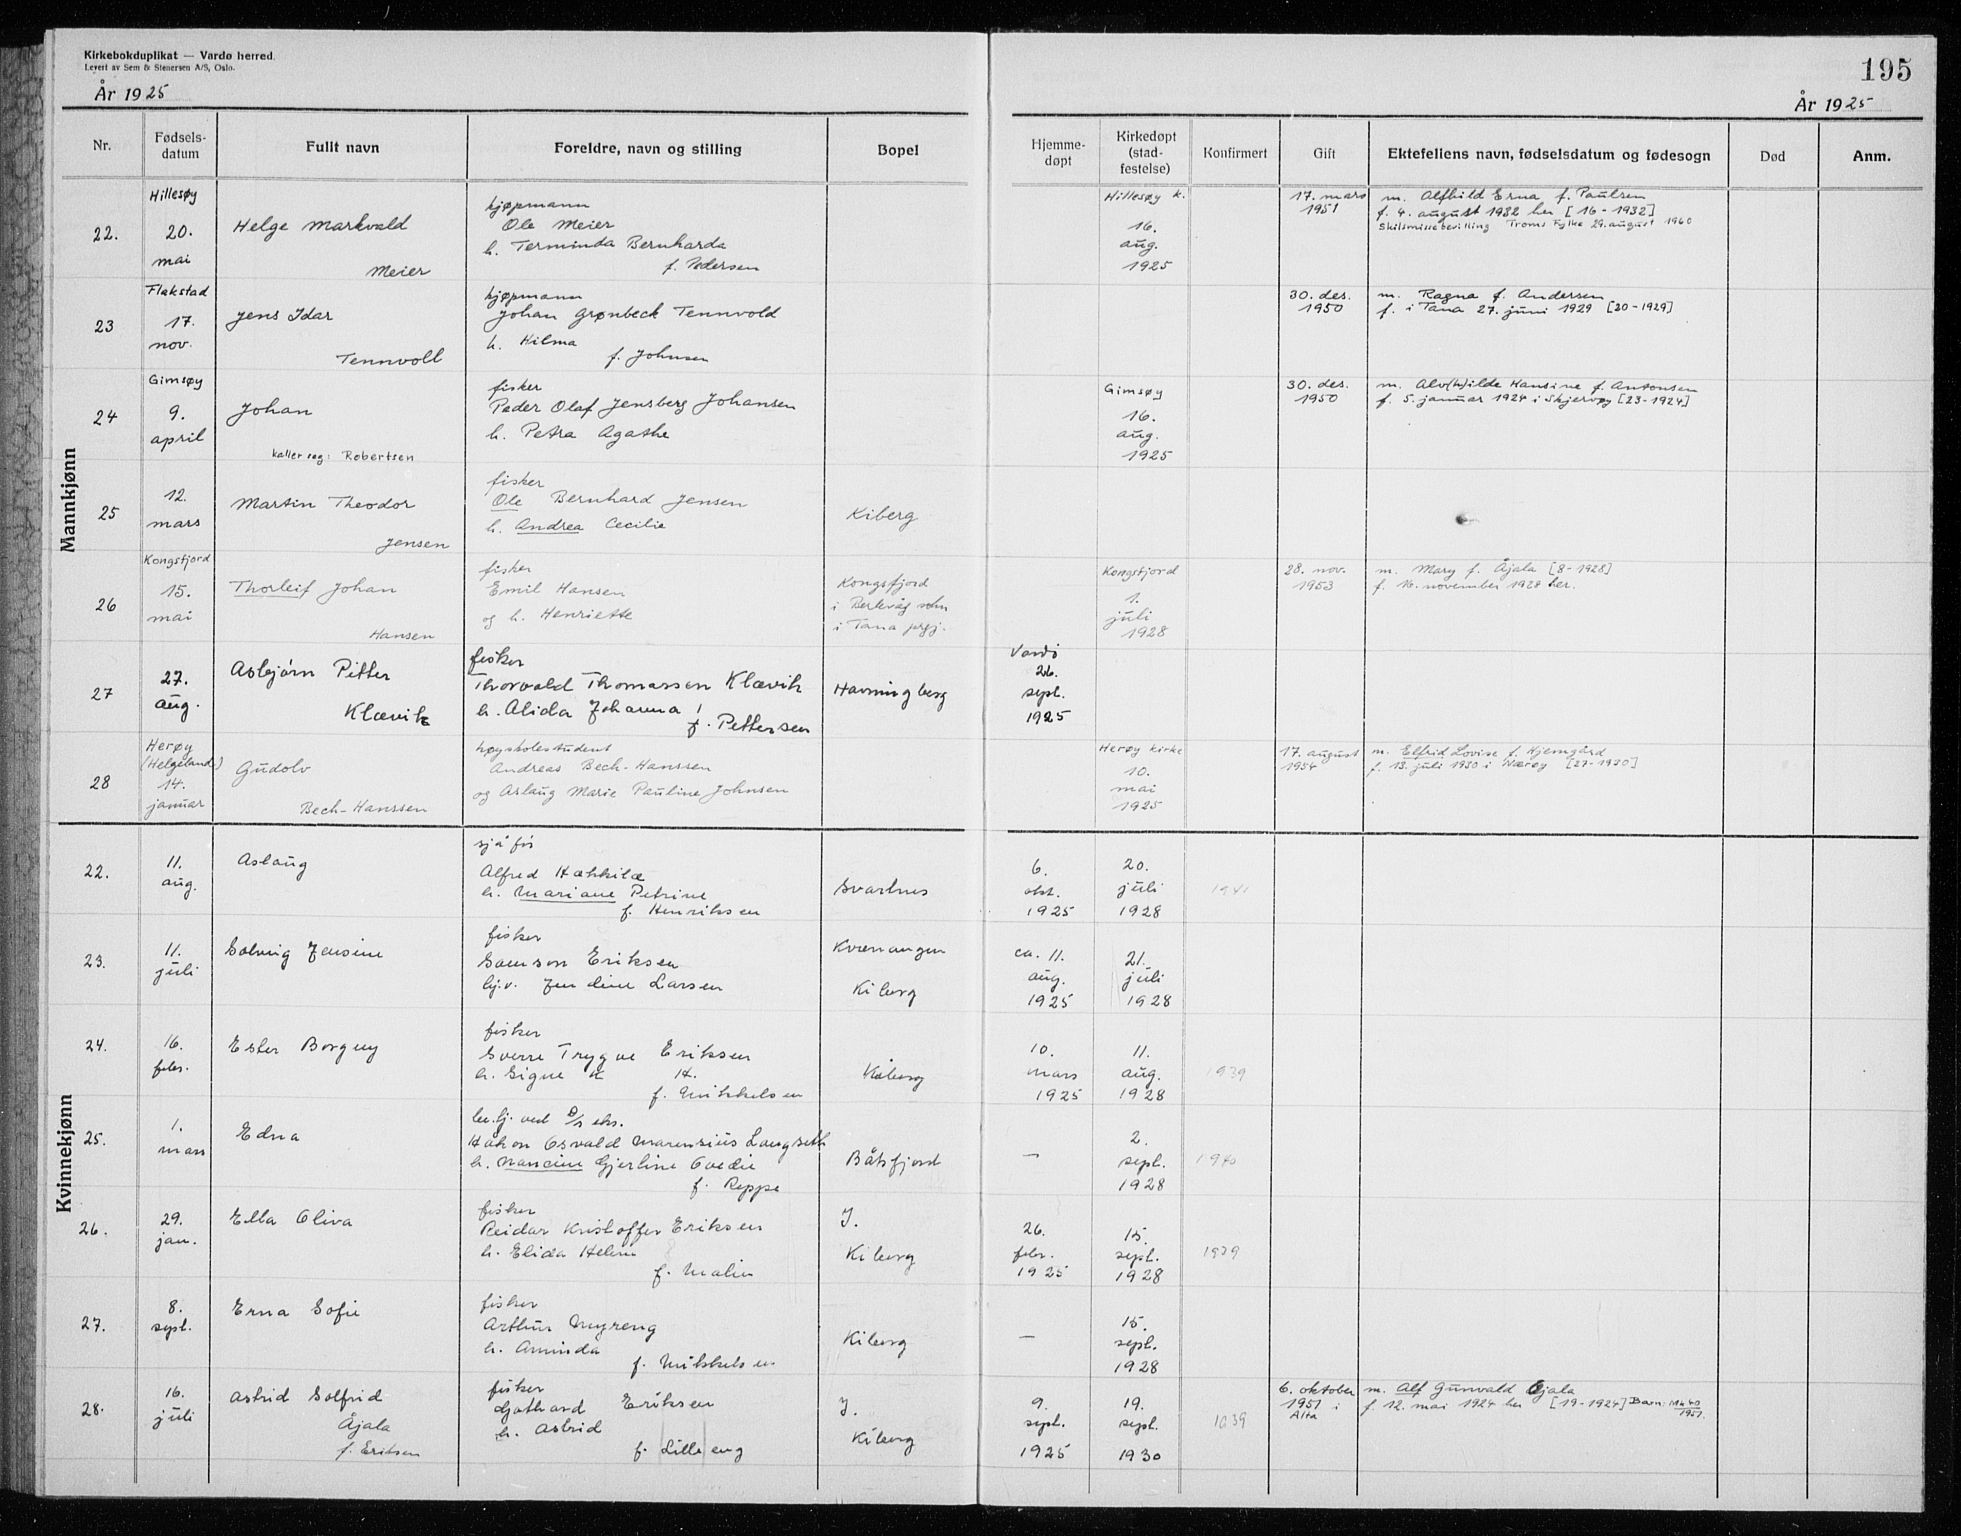 Kirkebokduplikat — Vardø herred.
Levert av Sem & Stenersen A/S, Oslo.
År 1925
195
År 1925
Nr.
Fødsels-
datum
Fullt navn
Foreldre, navn og stilling
Bopel
Hjemme-
døpt
Kirkedøpt
(stad-
festelse)
Konfirmert
Gift
Ektefellens navn, fødselsdatum og fødesogn
Død
Anm.
Mannkjønn
22.
Hillesøy
20.
mai
Helge Markvald
Meier
kjøpmann
Ole Meier
h. Terminda Bernharda
f. Pedersen
Hillesøy k.
16.
aug.
1925
17. mars
1951
m. Alfhild Erna f. Paulsen
f. 4. august 1932 her [16-1932]
Skilsmissebevilling Troms Fylke 29. august 1960
23
Flakstad
17.
nov.
Jens Idar
Tennvoll
kjøpmann
Johan Grønbeck Tennvold
h. Hilma
f. Johnsen
30. des.
1950
m. Ragna f. Andersen
f. i Tana 27. juni 1929 [20-1929]
24
Gimsøy
9.
april
Johan
kaller seg: Robertsen
fisker
Peder Olaf Jensberg Johansen
h. Petra Agathe
Gimsøy
16.
aug.
1925
30. des.
1950
m. Alv(h)ilde Hansine f. Antonsen
f. 5. januar 1924 i Skjervøy [23-1924]
25
12.
mars
Martin Theodor
Jensen
fisker
Ole Bernhard Jensen
h. Andrea Cecilie
Kiberg
26
Kongsfjord
15.
mai
Thorleif Johan
Hansen
fisker
Emil Hansen
og h. Henriette
Kongsfjord
i Berlevåg sokn
i Tana prgj.
Kongsfjord
1.
juli
1928
28. nov.
1953
m. Mary f. Åjala [8-1928]
f. 16. november 1928 her.
27
27.
aug.
Asbjörn Pitter
Klævik
fisker
Thorvald Thomassen Klævik
h. Alida Johanna
f. Pettersen
Havningberg
Vardö
26.
sept.
1925
28
Herøy
(Helgeland)
14.
januar
Gudolv
Bech-Hanssen
høyskolestudent
Andreas Bech-Hanssen
og Aslaug Marie Pauline Johnsen
Herøy kirke
10.
mai
1925
17. august
1954
m. Elfrid Lovise f. Hjemgård
f. 13. juli 1930 i Nærøy [27-1930]
Kvinnekjønn
22.
11.
aug.
Aslaug
sjåfør
Alfred Hækkilæ
h. Mariane Petrine
f. Henriksen
Svartnes
6.
okt.
1925
20.
juli
1928
1941
23.
11.
juli
Solveig Jensine
fisker
Samson Eriksen
hj.v. Jendine Larsen
Kvænangen
Kiberg
ca. 11.
aug.
1925
21.
juli
1928
24.
16.
febr.
Ester Borgny
fisker
Sverre Trygve Eriksen
h. Signe H.
f. Mikkelsen
Kiberg
10.
mars
1925
11.
aug.
1928
1939
25.
1.
mars
Edna
Håkon Osvald Marensius Langseth
h. Nancine Gjertine Ovedie
f. Reppe
Båtsfjord
—
2.
sept.
1928
1940
26.
29.
jan.
Ella Oliva
fisker
Reidar Kristoffer Eriksen
h. Elida Helene
f. Malin
I.
Kiberg
26.
febr.
1925
15.
sept.
1928
1939
27.
8.
sept.
Erna Sofie
fisker
Arthur Myreng
h. Aminda
f. Mikkelsen
Kiberg
—
15.
sept.
1928
28.
16.
juli
Astrid Solfrid
Åjala
f. Eriksen
fisker
Gothard Eriksen
h. Astrid
f. Lilleeng
I.
Kiberg
9.
sept.
1925
19.
sept.
1930
1939
6. oktober
1951 i
Alta
m. Alf Gunvald Åjala
f. 12. mai 1924 her [19-1924] Barn:
1951.